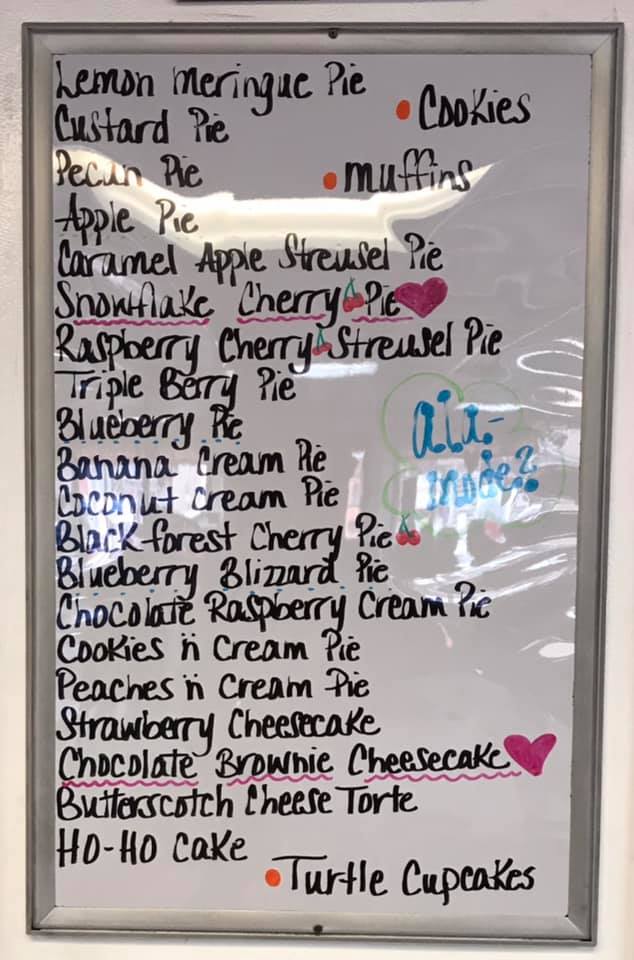 Lemon Meringue Pie
• Cookies
Custard Pie
Pecan Pie
• muffins
Apple Pie
Caramel Apple Streusel Pie
Snowflake Cherry Pie
Raspberry Cherry Streusel Pie
Triple Berry Pie
Blueberry Pie
ala-
mode?
Banana Cream Pie
Coconut cream Pie
Black forest Cherry Pie
Blueberry Blizzard Pie
Chocolate Raspberry Cream Pie
Cookies 'n Cream Pie
Peaches 'n Cream Pie
Strawberry Cheesecake
Chocolate Brownie Cheesecake
Butterscotch Cheese Torte
HO-HO cake
• Turtle Cupcakes